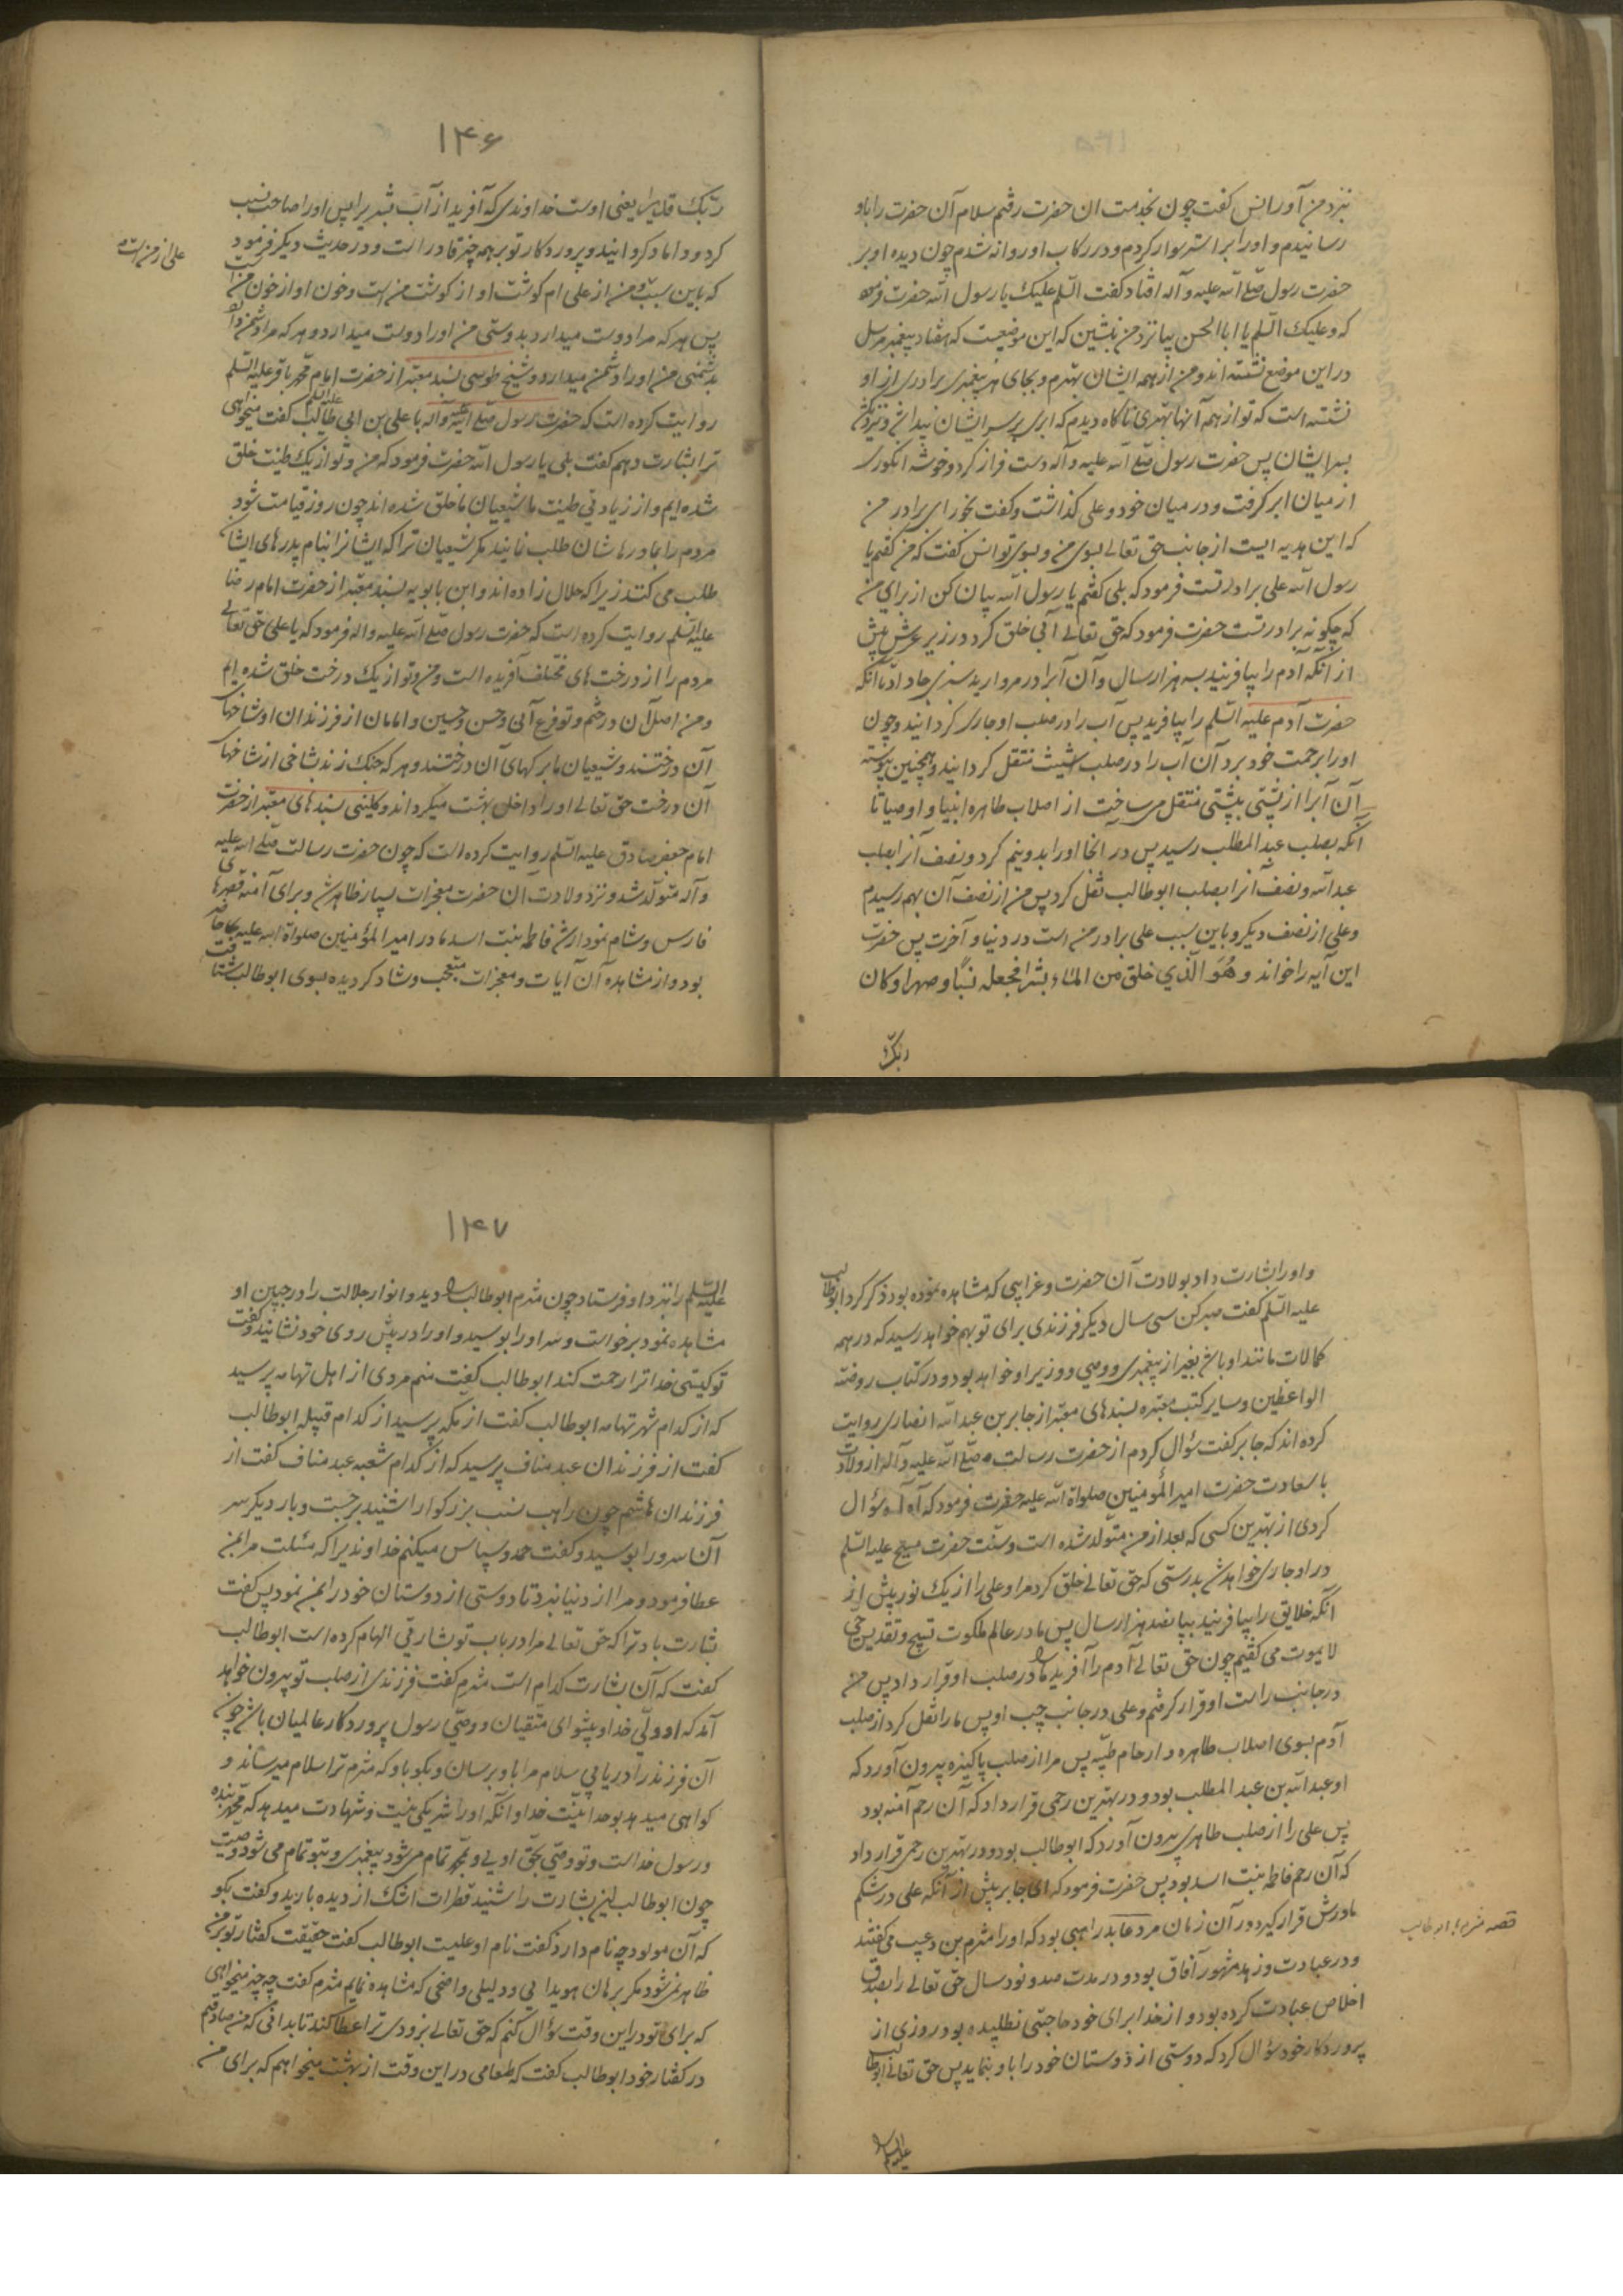 نزد من آور انس گفت چون بخدمت ان حضرت رفتم سلام آن حضرت را باو
رسانیدم و او را بر استر سوار کردم و در رکاب او روانه شدم چون دیده او بر
حضرت رسول صلی الله علیه و آله افتاد گفت السلم علیک یا رسول الله حضرت فرمود
که و علیک السلم یا ابا الحسن بیا نزد من بنشین که این موضعیت که هفتاد پیغمبر مرسل
در این موضع نشسته اند و من از همه ایشان بهترم و بجای هر پیغمبری برادری از او
نشسته است که تو از همه آنها بهتری ناگاه دیدم که ابری بر سر ایشان پیدا شد و نزدیک شد
بسر ایشان پس حضرت رسول صلی الله علیه و آله دست فراز کرد و خوشه انگوری
از میان ابر گرفت و در میان خود و علی گذاشت و گفت بخور ای برادر من
که این هدیه ایست از جانب حق تعالی بسوی من و بسوی تو انس گفت که من گفتم یا
رسول الله علی برادر تست فرمود که بلی گفتم یا رسول الله بیان کن از برای من
که چگونه برادر تست حضرت فرمود که حق تعالی آبی خلق کرد در زیر عرش پیش
از آنکه آدم را بیافریند بسه هزار سال و آن آبرا در مروارید سبزی جا داد تا آنکه
حضرت آدم علیه السلم را بیافرید پس آب را در صلب او جاری گردانید و چون
او را برحمت خود برد آن آب را در صلب شیث منتقل گردانید و همچنین پیوسته
آن آبرا از پشتی بپشتی منتقل می ساخت از اصلاب طاهره انبیا و اوصیا تا
آنکه بصلب عبد المطلب رسید پس در آنجا اورا بدو نیم کرد و نصف آنرا بصلب
عبد الله و نصف آنرا بصلب ابو طالب نقل کرد پس من از نصف آن بهم رسیدم
و علی از نصف دیگر و باین سبب علی برادر من است در دنیا و آخرت پس حضرت
این آیه را خواند و هُوَ الّذي خلق من الماء بشراً فجعله نسبًا و صهرا و کان
ربک
۱۴۶
ربّک قدیرا یعنی اوست خداوندی که آفرید از آب بشریرا پس اورا صاحب نسب
کرد و داماد گردانید و پروردکار تو بر همه چیز قادر است و در حدیث دیگر فرمود
که باین سبب من از علی ام گوشت او از گوشت من است و خون او از خون من است
علی از من است
پس هر که مرا دوست میدارد بدوستی من اورا دوست میدارد و هر که مرا دشمن دارد
بدشمنی من اورا دشمن میدارد و شیخ طوسی بسند معتبر از حضرت امام محمد باقر علیه السلم
روایت کرده است که حضرت رسول صلی الله علیه و آله با علی بن ابی طالب علیه السلم گفت میخواهی
ترا بشارت دهم گفت بلی یا رسول الله حضرت فرمود که من و تو از یک طینت خلق
شده ایم و از زیادتی طینت ما شیعیان ما خلق شده اند چون روز قیامت شود
مردم را بمادرهاشان طلب نمایند مگر شیعیان ترا که ایشانرا بنام پدرهای ایشان
طلب می کنند زیرا که حلال زاده اند و ابن بابویه بسند معتبر از حضرت امام رضا
علیه السلم روایت کرده است که حضرت رسول صلی الله علیه و اله فرمود که یا علی حق تعالی
مردم را از درخت های مختلف آفریده است و من و تو از یک درخت خلق شده ایم
و من اصل آن درختم و تو فرع آنی و حسن و حسین و امامان از فرزندان او شاخهای
آن درختند و شیعیان ما برگهای آن درختند و هر که چنگ زند بشاخی از شاخهای
آن درخت حق تعالی اورا داخل بهشت میگرداند و کلینی بسندهای معتبر از حضرت
امام جعفر صادق علیه السلم روایت کرده است که چون حضرت رسالت صلی الله علیه
و آله متولد شد و نزد ولادت آن حضرت معجزات بسیار ظاهر شد و برای آمنه قصرهای
فارس و شام نمودار شد فاطمه بنت اسد مادر امیر المؤمنین صلواة الله علیه بجا حاضر
بود و از مشاهده آن آیات و معجزات متعجب و شاد گردیده بسوی ابو طالب شتافت
و اورا بشارت داد بولادت آن حضرت و غرایبی که مشاهده نموده بود ذکر کرد ابو طالب
علیه السلم گفت صبر کن سی سال دیگر فرزندی برای تو بهم خواهد رسید که در همه
کمالات مانند او باشد بغیر از پیغمبری و وصی و وزیر او خواهد بود و در کتاب روضة
الواعظین و سایر کتب معتبره بسندهای معتبر از جابر بن عبد الله انصاری روایت
کرده اند که جابر گفت سؤال کردم از حضرت رسالت صلی الله علیه و آله از ولادت
با سعادت حضرت امیر المؤمنین صلواة الله علیه حضرت فرمود که آه آه سؤال
کردی از بهترین کسی که بعد از من متولد شده است و سنّت حضرت مسیح علیه السلم
در او جاری خواهد شد بدرستی که حق تعالی خلق کرد مرا و علی را از یک نور پیش از
آنکه خلایق را بیافریند بپانصد هزار سال پس ما در عالم ملکوت تسبیح و تقدیس حی
لا یموت می گفتیم چون حق تعالی آدم را آفرید ما را در صلب او قرار داد پس من
در جانب راست او قرار گرفتم و علی در جانب چپ او پس ما را نقل کرد از صلب
آدم بسوی اصلاب طاهره و ارحام طیبه پس مرا از صلب پاکیزه بیرون آورد که
او عبد الله بن عبد المطلب بود و در بهترین رحمی قرار داد که آن رحم آمنه بود
پس علی را از صلب طاهری بیرون آورد که ابو طالب بود و در بهترین رحمی قرار داد
که آن رحم فاطمه بنت اسد بود پس حضرت فرمود که ای جابر پیش از آنکه علی در شکم
مادرش قرار گیرد در آن زمان مرد عابد راهبی بود که اورا مثرم بن دعیب می گفتند
قصه مثرم با ابو طالب
و در عبادت و زهد مشهور آفاق بود و در مدت صد و نود سال حق تعالی را بصدق
اخلاص عبادت کرده بود و از خدا برای خود حاجتی نطلبیده بود روزی از
پروردکار خود سؤال کرد که دوستی از دوستان خود را باو بنماید پس حق تعالی ابو طالب
علیه السلم
۱۴۷
علیه السلم را نزد او فرستاد چون مثرم ابو طالب را دید و انوار جلالت را در جبین او
مشاهده نمود برخواست و سر اورا بوسید و اورا در پیش روی خود نشانید و گفت
تو کیستی خدا ترا رحمت کند ابو طالب گفت منم مردی از اهل تهامه پرسید
که از کدام شهر تهامه ابو طالب گفت از مکه پرسید از کدام قبیله ابو طالب
گفت از فرزندان عبد مناف پرسید که از کدام شعبه عبد مناف گفت از
فرزندان هاشم چون راهب نسب بزرگوار را شنید برجست و بار دیگر سر
آن سرور را بوسید و گفت حمد و سپاس میکنم خداوندیرا که مسئلت مرا بمن
عطا فرمود و مرا از دنیا نبرد تا دوستی از دوستان خود را بمن نمود پس گفت
بشارت باد ترا که حق تعالی مرا در باب تو بشارتی الهام کرده است ابو طالب
گفت که آن بشارت کدام است مثرم گفت فرزندی از صلب تو بیرون خواهد
آمد که او ولی خدا و پیشوای متقیان و وصی رسول پروردکار عالمیان باشد چون
آن فرزند را دریابی سلام مرا باو برسان و بگو باو که مثرم ترا سلام میرساند و
گواهی میدهد بوحدانیت خدا و آنکه اورا شریکی نیست و شهادت میدهد که محمد بنده
و رسول خداست و تو وصی بحق اویی و بمحمد تمام می شود پیغمبری و بتو تمام می شود وصیت
چون ابو طالب این بشارت را شنید قطرات اشک از دیده بارید و گفت بگو
که آن مولود چه نام دارد گفت نام او علیست ابو طالب گفت حقیقت گفتار تو بر من
ظاهر نمی شود مگر ببرهان هویدایی و دلیلی واضحی که مشاهده نمایم مثرم گفت چه چیز میخواهی
که برای تو در این وقت سؤال کنم که حق تعالی بزودی ترا عطا کند تا بدانی که من صادقم
در گفتار خود ابو طالب گفت که طعامی در این وقت از بهشت میخواهم که برای من